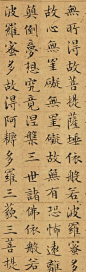 無所得故菩提薩埵依般若波羅蜜多
故心無罣礙無罣礙故無有恐怖遠離
顛倒夢想究竟涅槃三世諸佛依般若
波羅蜜多故得阿耨多羅三藐三菩提